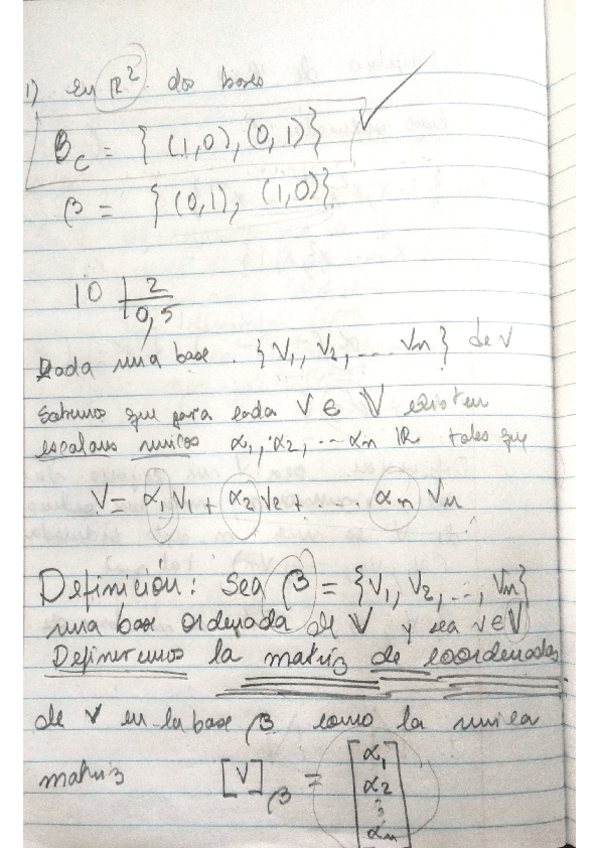 1) en ℝ² dos bases
B_C = { (1,0), (0,1) }
β = { (0,1), (1,0) }
10 | 2
0,5
Dada una base. { V₁, V₂, ... Vn } de V
Sabemos que para cada V ∈ V existen
escalares unicos α₁, α₂, ... αn ℝ tales que
V = α₁ V₁ + α₂ V₂ + ... αn Vn
Definición: Sea β = { V₁, V₂, ..., Vn }
una base ordenada de V y sea v ∈ V
Definiremos la matriz de coordenadas
de V en la base β como la unica
matriz [V]β = [ α₁
α₂
⋮
αn ]